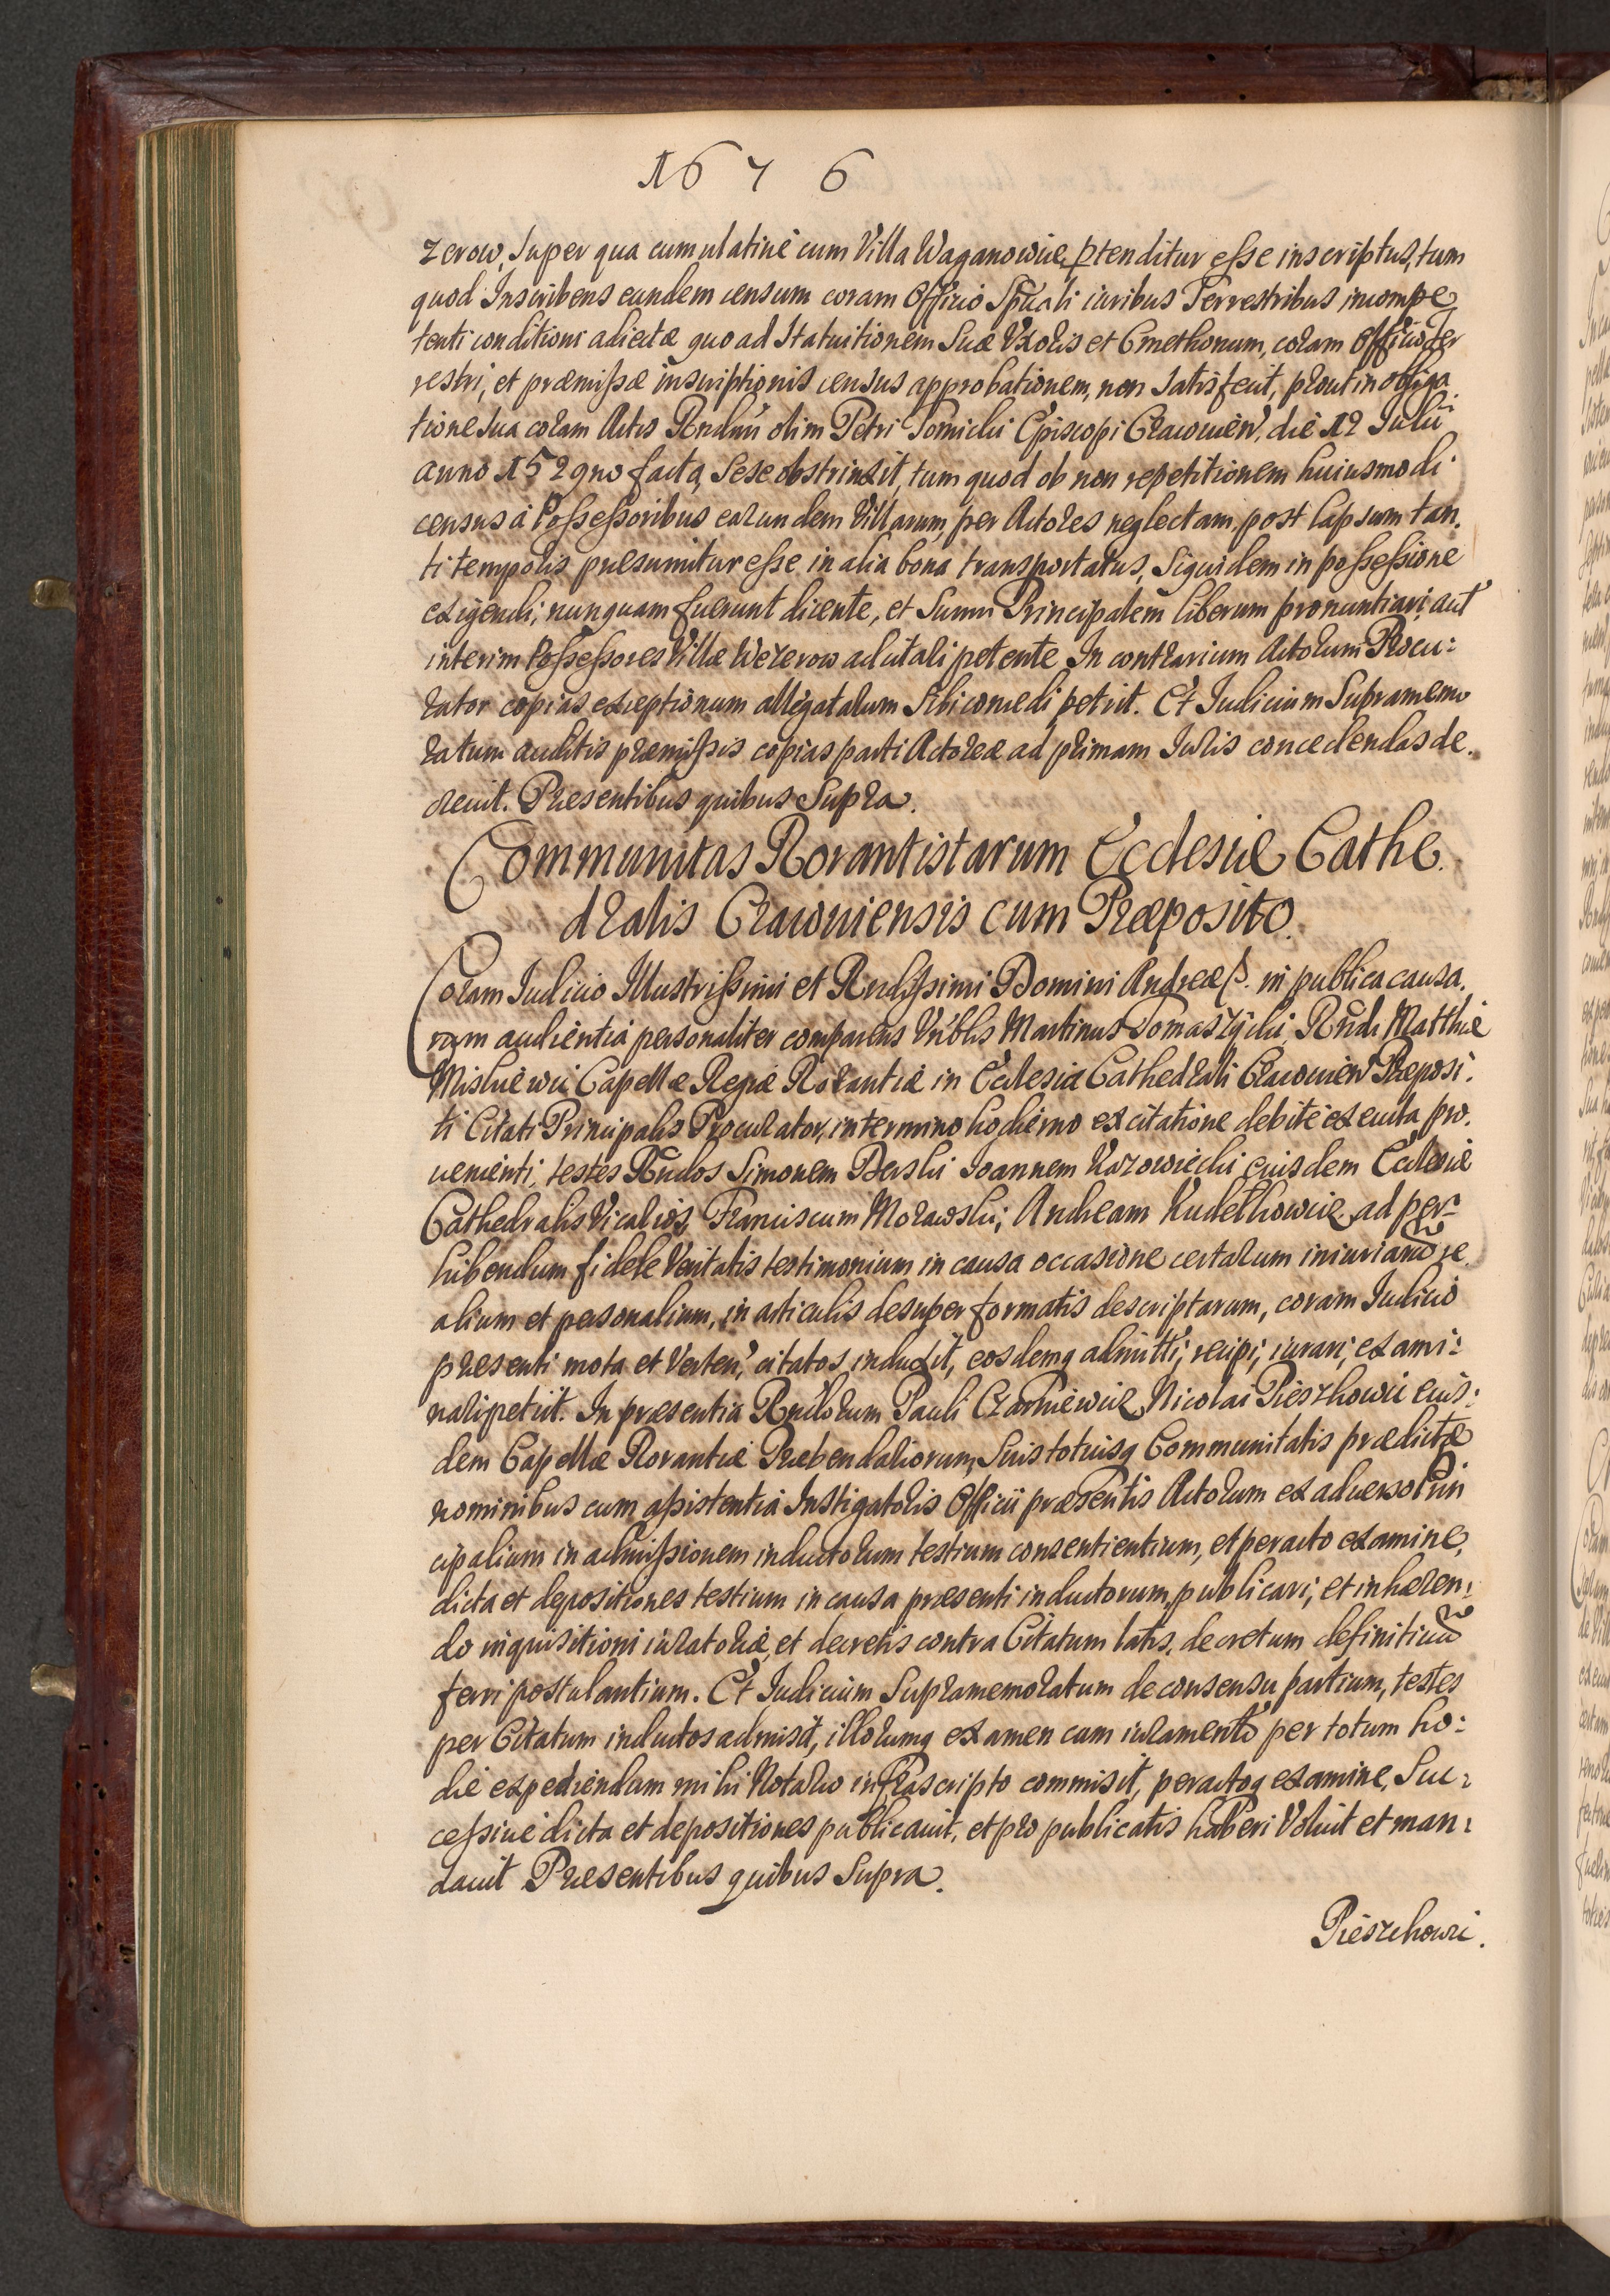 1676
zerow, super qua cumulatiuè cum Villa Waganowice ptenditur esse inscriptus, tum
quod Inscribens eundem censum coram Officio Spũali iuribus Terrestribus incompe
tenti conditioni adiectæ quo ad Statuitionem Suæ Uxoris et Cmethonum, coram Officio Ter
restri, et præmissæ inscriptionis census approbationem, non satisfecit, prout in obliga
tione sua coram Actis Rndmi olim Petri Tomicki Episcopi Cracouien̄, die 12 Iulij
anno 1529no facta, sese obstrinxit, tum quod ob non repetitionem huiusmodi
census à Possessoribus earundem Villarum, per Actores neglectam, post lapsum tan.
ti temporis presumitur esse in alia bona transportatus, siquidem in possessione
exigendi, nunquam fuerunt dicente, et suum Principalem liberum pronuntiari, aut
interim Possessores Villæ Wezerow adcitari petente In contrarium Actorum Procu:
rator copias exceptionum allegatarum sibi concedi petiit. Et Iudicium Supramemo
ratum auditis præmissis copias parti Actoreæ ad primam Iuris concedendas de.
creuit. Presentibus quibus Supra.
Communitas Rorantistarum Ecclesiæ Cathe.
dralis Cracouiensis cum Præposito.
Coram Iudicio Illustrissimi et Rndissimi Domini Andreæ p. in publica causa.
rum audientia personaliter comparens Vriblis Martinus Tomaszycki, Rndi Matthiæ
Miskiewicz Capellæ Regiæ Rorantiæ in Ecclesia Cathedrali Cracouien̄ Preposi.
ti Citati Principalis Procurator, in termino hodierno ex citatione debitè executa pro.
uenienti, testes Rndos Simonem Berski Ioannem Kazowiecki eiusdem Ecclesiæ
Cathedralis Vicarios, Franciscum Morawski, Andream Kudelkowicz ad per.
hibendum fidele Veritatis testimonium in causa occasione certarum iniuriarũ re
alium et personalium, in articulis desuper formatis descriptarum, coram Iudicio
presenti mota et Verten̄, citatos induxit, eosdemq admitti, recipi, iurari, exami:
nari petiit. In præsentia Rndorum Pauli Czarkiewicz Nicolai Pieszkowic eius:
dem Capellæ Rorantiæ Præbendariorum, suis totiusq Communitatis prædictæ
nominibus cum assistentia Instigatoris Officii præsentis Actorum ex aduerso Prin
cipalium in admissionem inductorum testium consentientium, et peracto examine,
dicta et depositiones testium in causa presenti inductorum, publicari, et inhæren:
do inquisitioni iuratoriæ, et decretis contra Citatum latis, decretum definitiuũ
ferri postulantium. Et Iudicium Supramemoratum de consensu partium, testes
per Citatum inductos admisit, illorumq examen cum iuramento per totum ho:
die expediendum mihi Notario infrascripto commisit, peractoq examine, suc:
cessiuè dicta et depositiones publicauit, et pro publicatis haberi Voluit et man:
dauit Presentibus quibus Supra.
Pieszkowic.